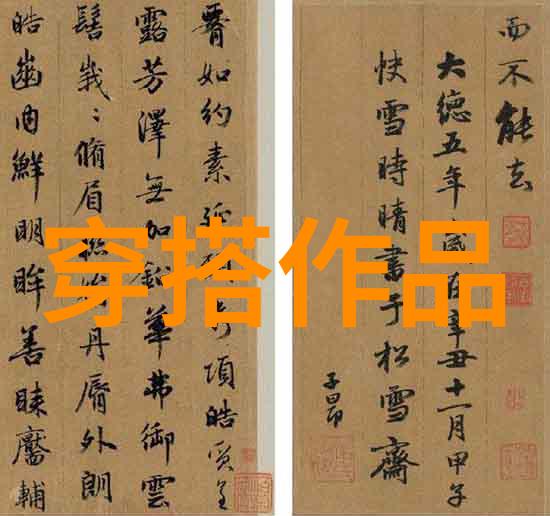 腰如約素延頸秀項皓質呈
露芳澤無加鉛華弗御雲
髻峩〻脩眉聯娟丹脣外朗
皓齒內鮮明眸善睞靨輔
而不能去
大德五年歲在辛丑十一月甲子
快雪時晴書于松雪齋
子昂
穿搭作品